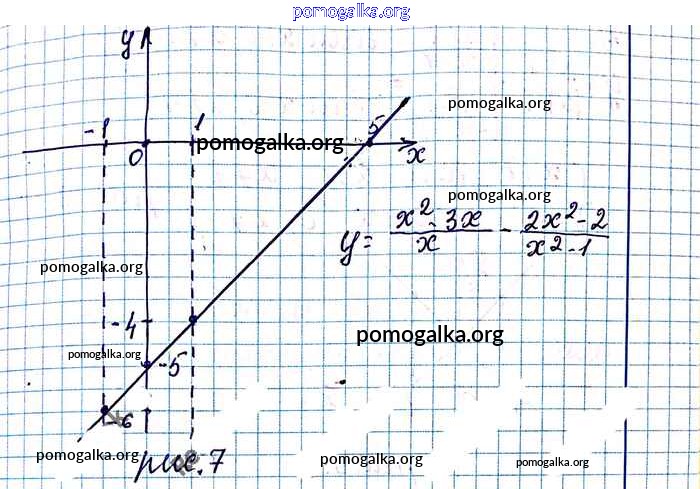 pomogalka.org
y
pomogalka.org
-1 1 5
pomogalka.org
0 x
pomogalka.org
y = \frac{x^2-3x}{x} - \frac{2x^2-2}{x^2-1}
pomogalka.org
-4
pomogalka.org
pomogalka.org
-5
-6
pomogalka.org
рис. 7
pomogalka.org
pomogalka.org